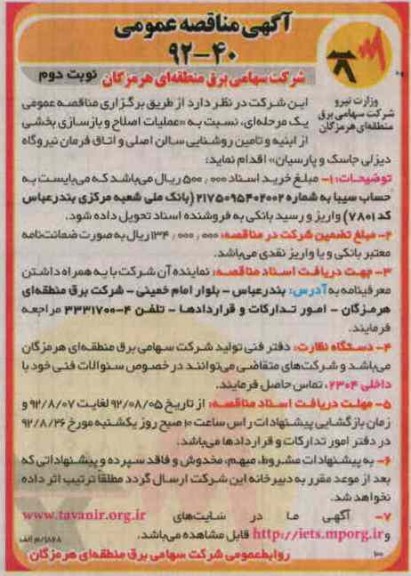 آگهی مناقصه عمومی
۹۲-۴۰
شرکت سهامی برق منطقه‌ای هرمزگان نوبت دوم
وزارت نیرو
شرکت سهامی برق
منطقه‌ای هرمزگان
این شرکت در نظر دارد از طریق برگزاری مناقصه عمومی
یک مرحله‌ای، نسبت به «عملیات اصلاح و بازسازی بخشی
از ابنیه و تامین روشنایی سالن اصلی و اتاق فرمان نیروگاه
دیزلی جاسک و پارسیان» اقدام نماید:
توضیحات: ۱- مبلغ خرید اسناد ۵۰۰٫۰۰۰ ریال می‌باشد که می‌بایست به
حساب سیبا به شماره ۲۱۷۵۰۹۵۴۰۲۰۰۲ (بانک ملی شعبه مرکزی بندرعباس
کد ۷۸۰۱) واریز و رسید بانکی به فروشنده اسناد تحویل داده شود.
۲- مبلغ تضمین شرکت در مناقصه: ۱۳۴٫۰۰۰٫۰۰۰ ریال به صورت ضمانت‌نامه
معتبر بانکی و یا واریز نقدی می‌باشد.
۳- جهت دریافت اسناد مناقصه: نماینده آن شرکت با به همراه داشتن
معرفینامه به آدرس: بندرعباس - بلوار امام خمینی - شرکت برق منطقه‌ای
هرمزگان - امور تدارکات و قراردادها - تلفن ۴-۳۳۳۱۷۰۰ مراجعه
فرمایند.
۴- دستگاه نظارت: دفتر فنی تولید شرکت سهامی برق منطقه‌ای هرمزگان
می‌باشد و شرکت‌های متقاضی می‌توانند در خصوص سئوالات فنی خود با
داخلی ۲۳۰۴، تماس حاصل فرمایند.
۵- مهلت دریافت اسناد مناقصه: از تاریخ ۹۲/۰۸/۰۵ لغایت ۹۲/۸/۰۷ و
زمان بازگشایی پیشنهادات راس ساعت ۱۰ صبح روز یکشنبه مورخ ۹۲/۸/۲۶
در دفتر امور تدارکات و قراردادها می‌باشد.
۶- به پیشنهادات مشروط، مبهم، مخدوش و فاقد سپرده و پیشنهاداتی که
بعد از موعد مقرر به دبیرخانه این شرکت ارسال گردد مطلقاً ترتیب اثر داده
نخواهد شد.
۷- آگهی ما در سایت‌های www.tavanir.org.ir
و http://iets.mporg.ir قابل مشاهده می‌باشد.
روابط عمومی شرکت سهامی برق منطقه‌ای هرمزگان